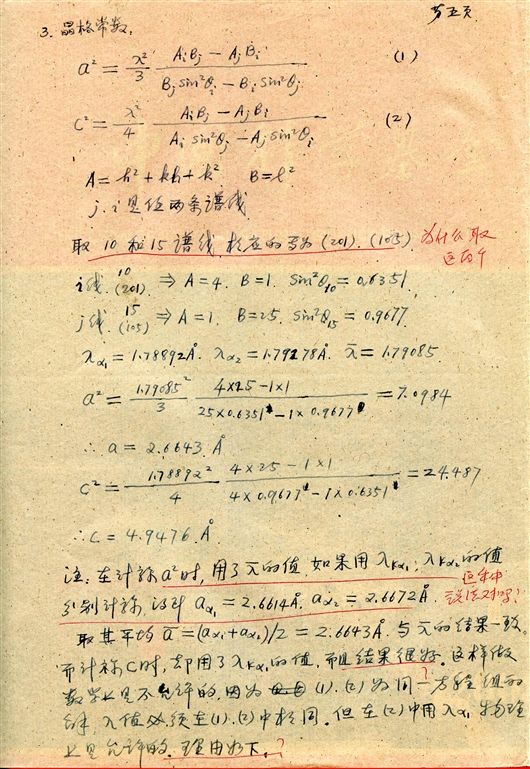 第五页
3. 晶格常数:
a² = λ²/3 · (AᵢBⱼ − AⱼBᵢ)/(Bⱼ sin²θᵢ − Bᵢ sin²θⱼ) (1)
c² = λ²/4 · (AᵢBⱼ − AⱼBᵢ)/(Aᵢ sin²θⱼ − Aⱼ sin²θᵢ) (2)
A = h² + kh + k² B = l²
j. i 是任两条谱线
取 10 和 15 谱线. 相应的号为 (201). (105) 为什么取
这两个
i线 10 (201) ⇒ A=4. B=1. Sin²θ₁₀ = 0.6351
j线 15 (105) ⇒ A=1. B=25. Sin²θ₁₅ = 0.9677
λα₁ = 1.78892Å. λα₂ = 1.79278Å. λ̄ = 1.79085.
a² = 1.79085²/3 · (4×25−1×1)/(25×0.6351−1×0.9677) = 7.0984
∴ a = 2.6643 Å
c² = 1.78892²/4 · (4×25−1×1)/(4×0.9677−1×0.6351) = 24.487
∴ C = 4.9476 Å.
注: 在计称 a² 时, 用了 λ̄ 的值. 如果用 λKα₁, λKα₂ 的值 这种
分别计称, 得到 aα₁ = 2.6614Å. aα₂ = 2.6672Å. 说法对吗?
取其平均 ā = (aα₁+aα₂)/2 = 2.6643Å. 与 λ̄ 的结果一致.
而计称 C 时, 却用了 λKα₁ 的值, 而且结果很好. 这样做
数学上是不允许的. 因为 (1). (2) 为同一方程组的
解, λ值必须在(1). (2) 中相同. 但在 (2) 中用 λα₁ 物理
上是允许的. 理由如下. ?